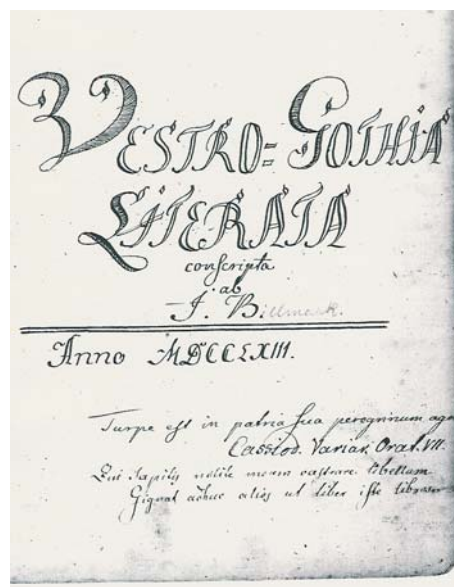 VESTRO=GOTHIA
LITERATA
conscripta
ab
J. Billmark.
Anno MDCCLXIII.
Turpe est in patria sua peregrinum age
Cassiod. Variar. Orat. VII.
Qui sapitis nolite meum castrare libellum
Gignat adhuc alios ut liber iste libros